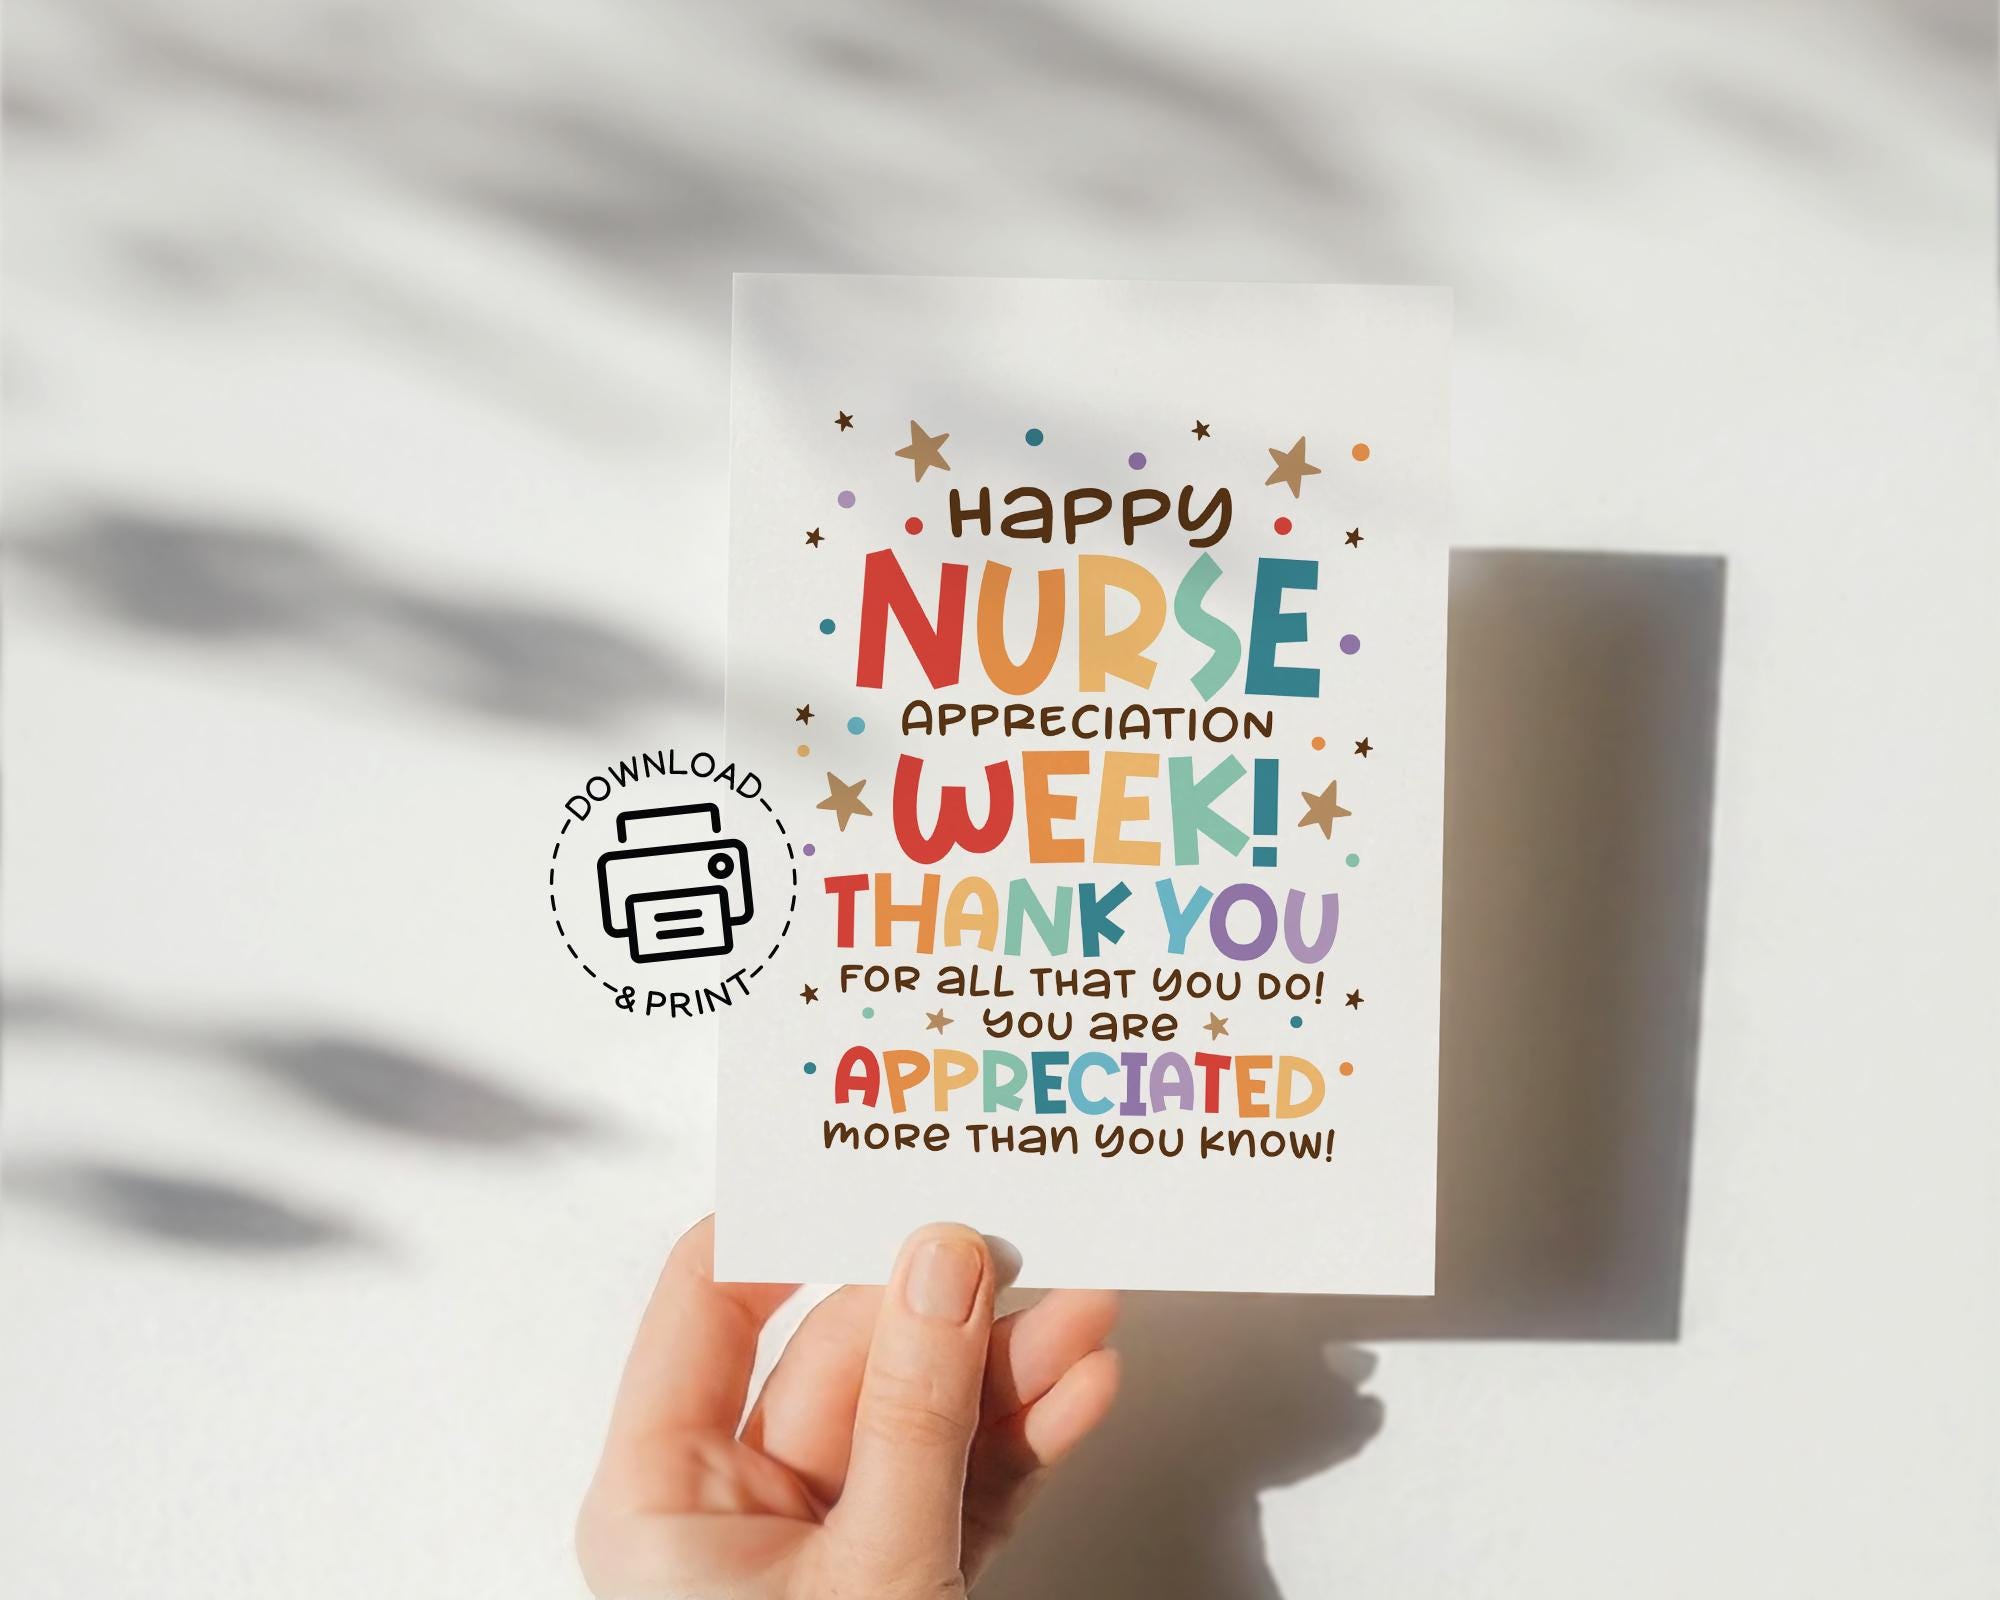 Happy
NURSE
APPRECIATION
WEEK!
THANK YOU
FOR aLL THaT YOU DO!
YOU aRe
APPRECIATED
moRe THan YOU Know!
DOWNLOAD
& PRINT